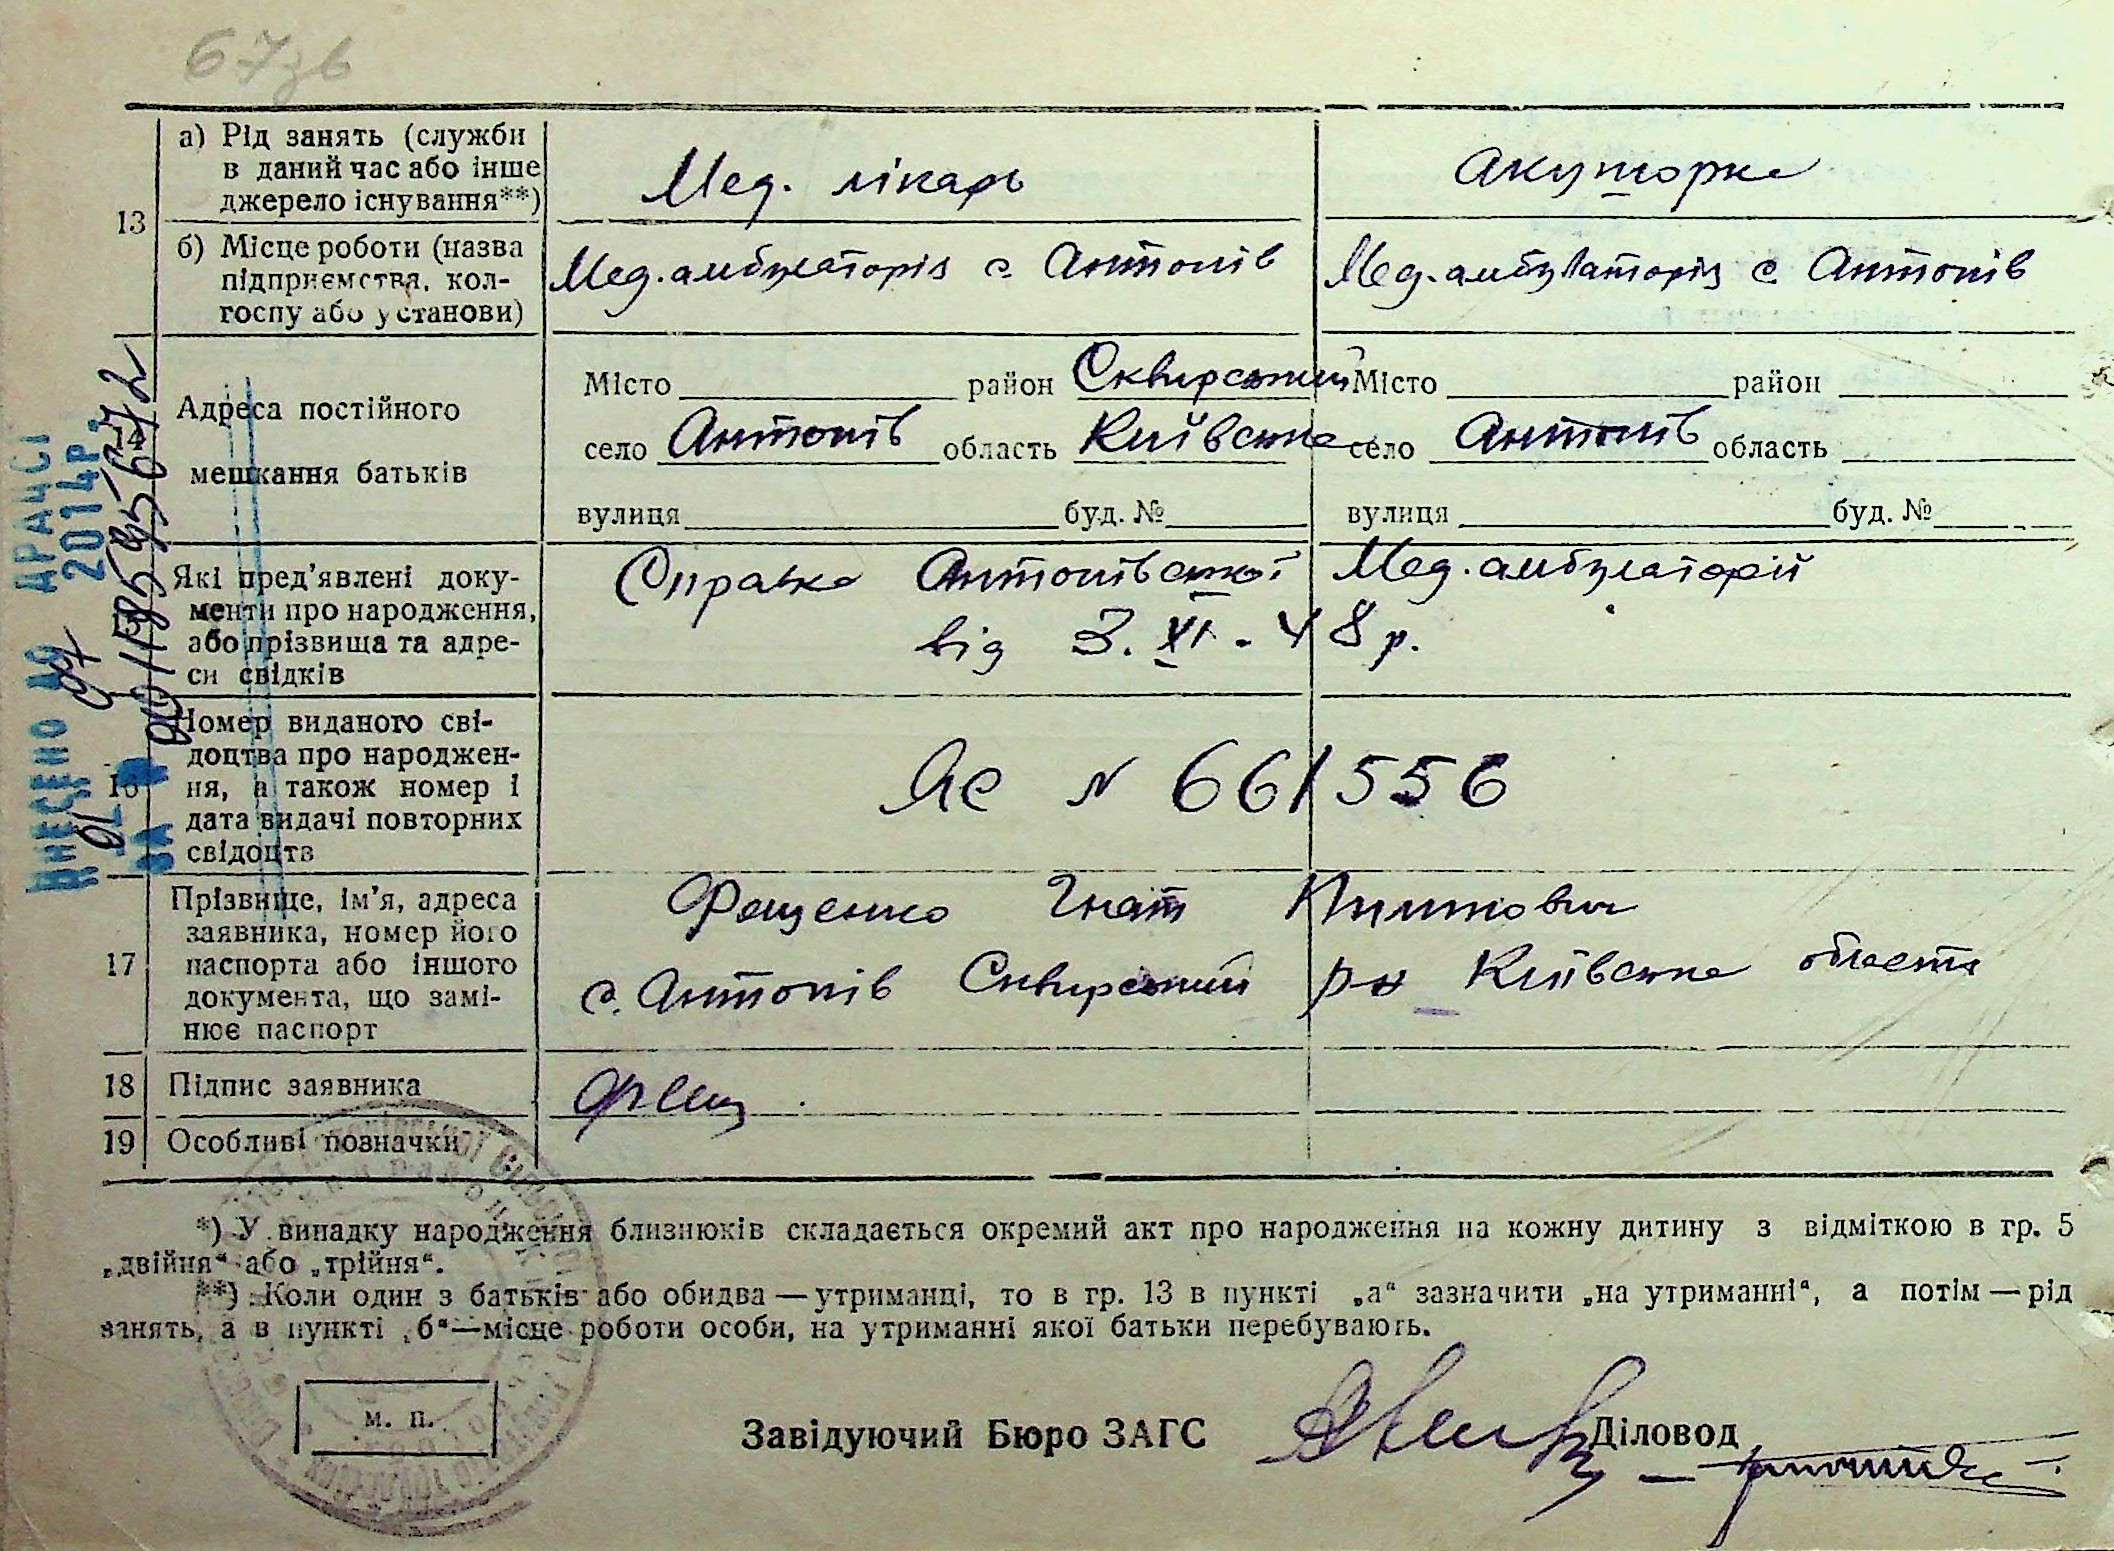 67зв
а) Рід занять (служби в даний час або інше джерело існування**)
Мед. лікарь
акушорка
13
б) Місце роботи (назва підприємства, колгоспу або установи)
Мед. амбулаторія с. Антонів
Мед. амбулаторія с Антонів
14
Адреса постійного мешкання батьків
Місто район Сквирський
село Антонів область Київська
вулиця буд. №
Місто район
село Антонів область
вулиця буд. №
15
Які пред'явлені документи про народження, або прізвища та адреси свідків
Справка Антонівської Мед. амбулаторії
від 3. XI. 48 р.
16
Номер виданого свідоцтва про народження, а також номер і дата видачі повторних свідоцтв
ЯС N 661556
17
Прізвище, ім'я, адреса заявника, номер його паспорта або іншого документа, що замінює паспорт
Фещенко Гнат Пилипович
с. Антонів Сквирський р-н Київська область
18
Підпис заявника
Фещ
19
Особливі позначки
*) У випадку народження близнюків складається окремий акт про народження на кожну дитину з відміткою в гр. 5
„двійня“ або „трійня“.
**) Коли один з батьків або обидва — утриманці, то в гр. 13 в пункті „а“ зазначити „на утриманні“, а потім — рід
занять, а в пункті „б“ — місце роботи особи, на утриманні якої батьки перебувають.
м. п.
Завідуючий Бюро ЗАГС
Діловод
ВНЕСЕНО ДО ДРАЦСГ
2014р.
ЗА №